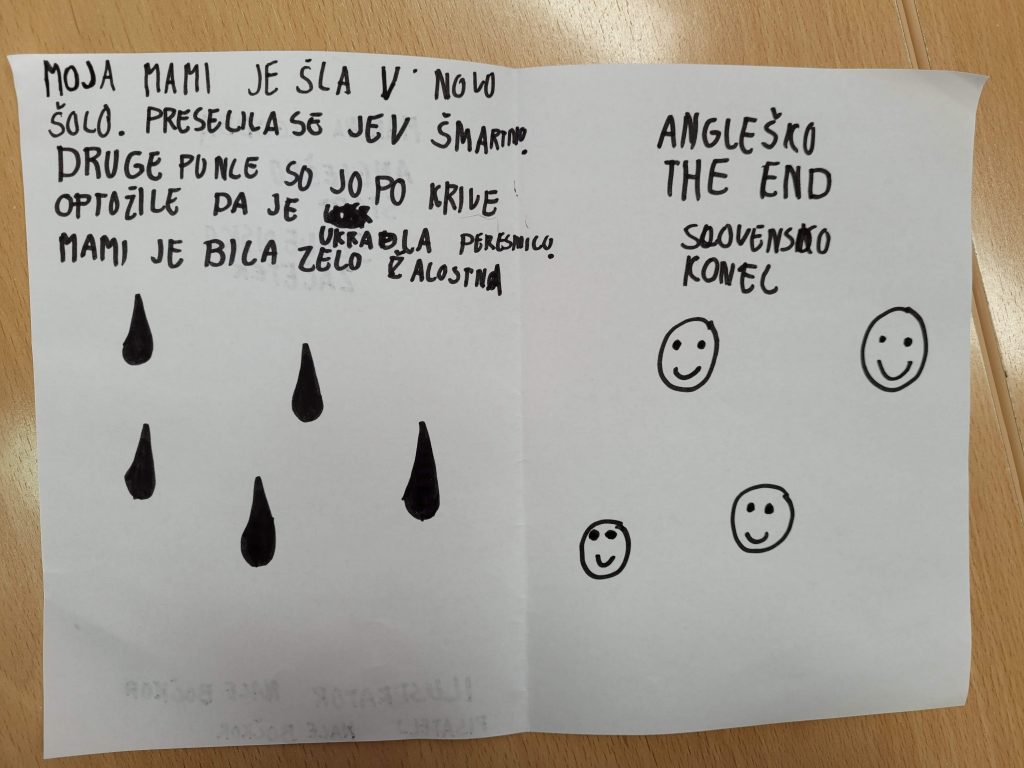 MOJA MAMI JE ŠLA V NOVO
ŠOLO. PRESELILA SE JE V ŠMARTNO.
DRUGE PUNCE SO JO PO KRIVE
OPTOŽILE DA JE
UKRADLA PERESNICO.
MAMI JE BILA ZELO ŽALOSTNA
ANGLEŠKO
THE END
SLOVENSKO
KONEC